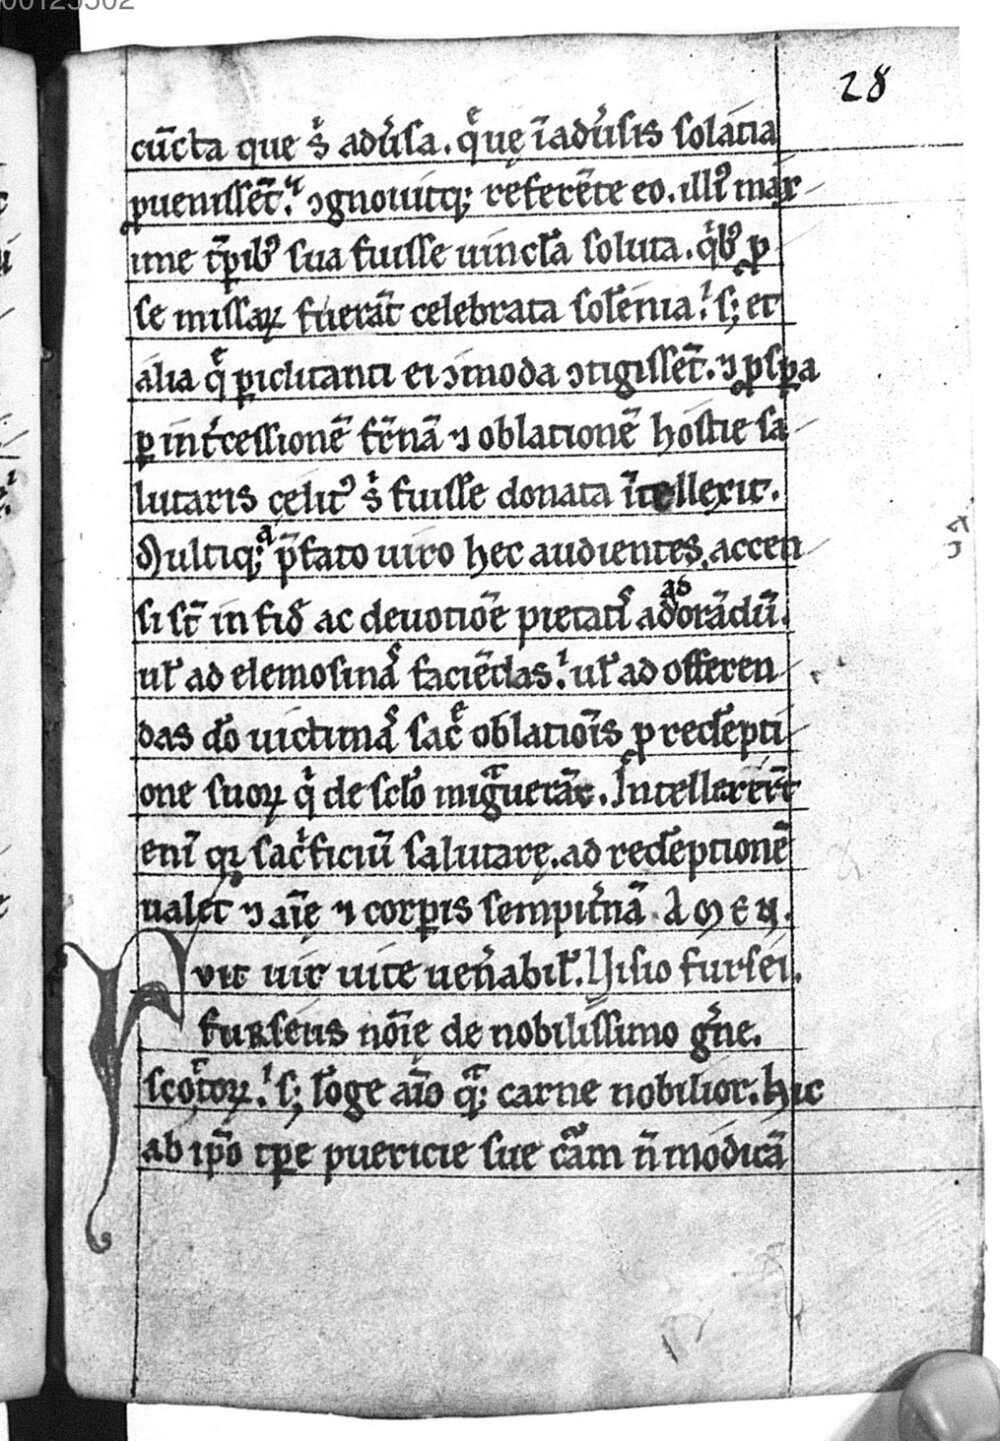 00125502
28
cūcta que s̉ adu̾sa. q̊uę ī adu̾sis solatia
ꝑuenissēt. ⁊ ɔgnouitq; referēte eo. illꝰ max
ime t̄pibꝰ sua fuisse uincl̄a soluta. q̇bꝰ ꝓ
se missaꝝ fuerāt celebrata sol̄enia. s; et
alia q̄ ꝑiclitanti ei ɔmoda ɔtigissēt. ⁊ ꝓspa
ꝑ int̾cessionē fr̄nā ⁊ oblationē hostie sa
lutaris cęlitꝰ s̉ fuisse donata ītellexit.
Multiq; a p̄fato uiro hec audientes, accen
si st̄ in fid̄ ac deuotiōe pietatis ad orādū.
ul̄ ad elemosinas faciēdas. ul̄ ad offeren
das dō uictimas sac̄ oblatiōis ꝓ redēpti
one suoꝝ q̇ de sclō migͣuerāt. Intellexer̄t
enī qꝫ sac̓ficiū salutarę. ad redēptionē
ualet ⁊ aīę ⁊ corꝑis sempit̾nā. AMEN.
Fvit uir uite uen̾abil̄. Visio fursei.
furseus noīe de nobilissimo gn̄e.
scotoꝝ. s; lōge aīo qͣ; carne nobilior. hic
ab ip̄o tp̄e puericie sue cām n̄ modicā